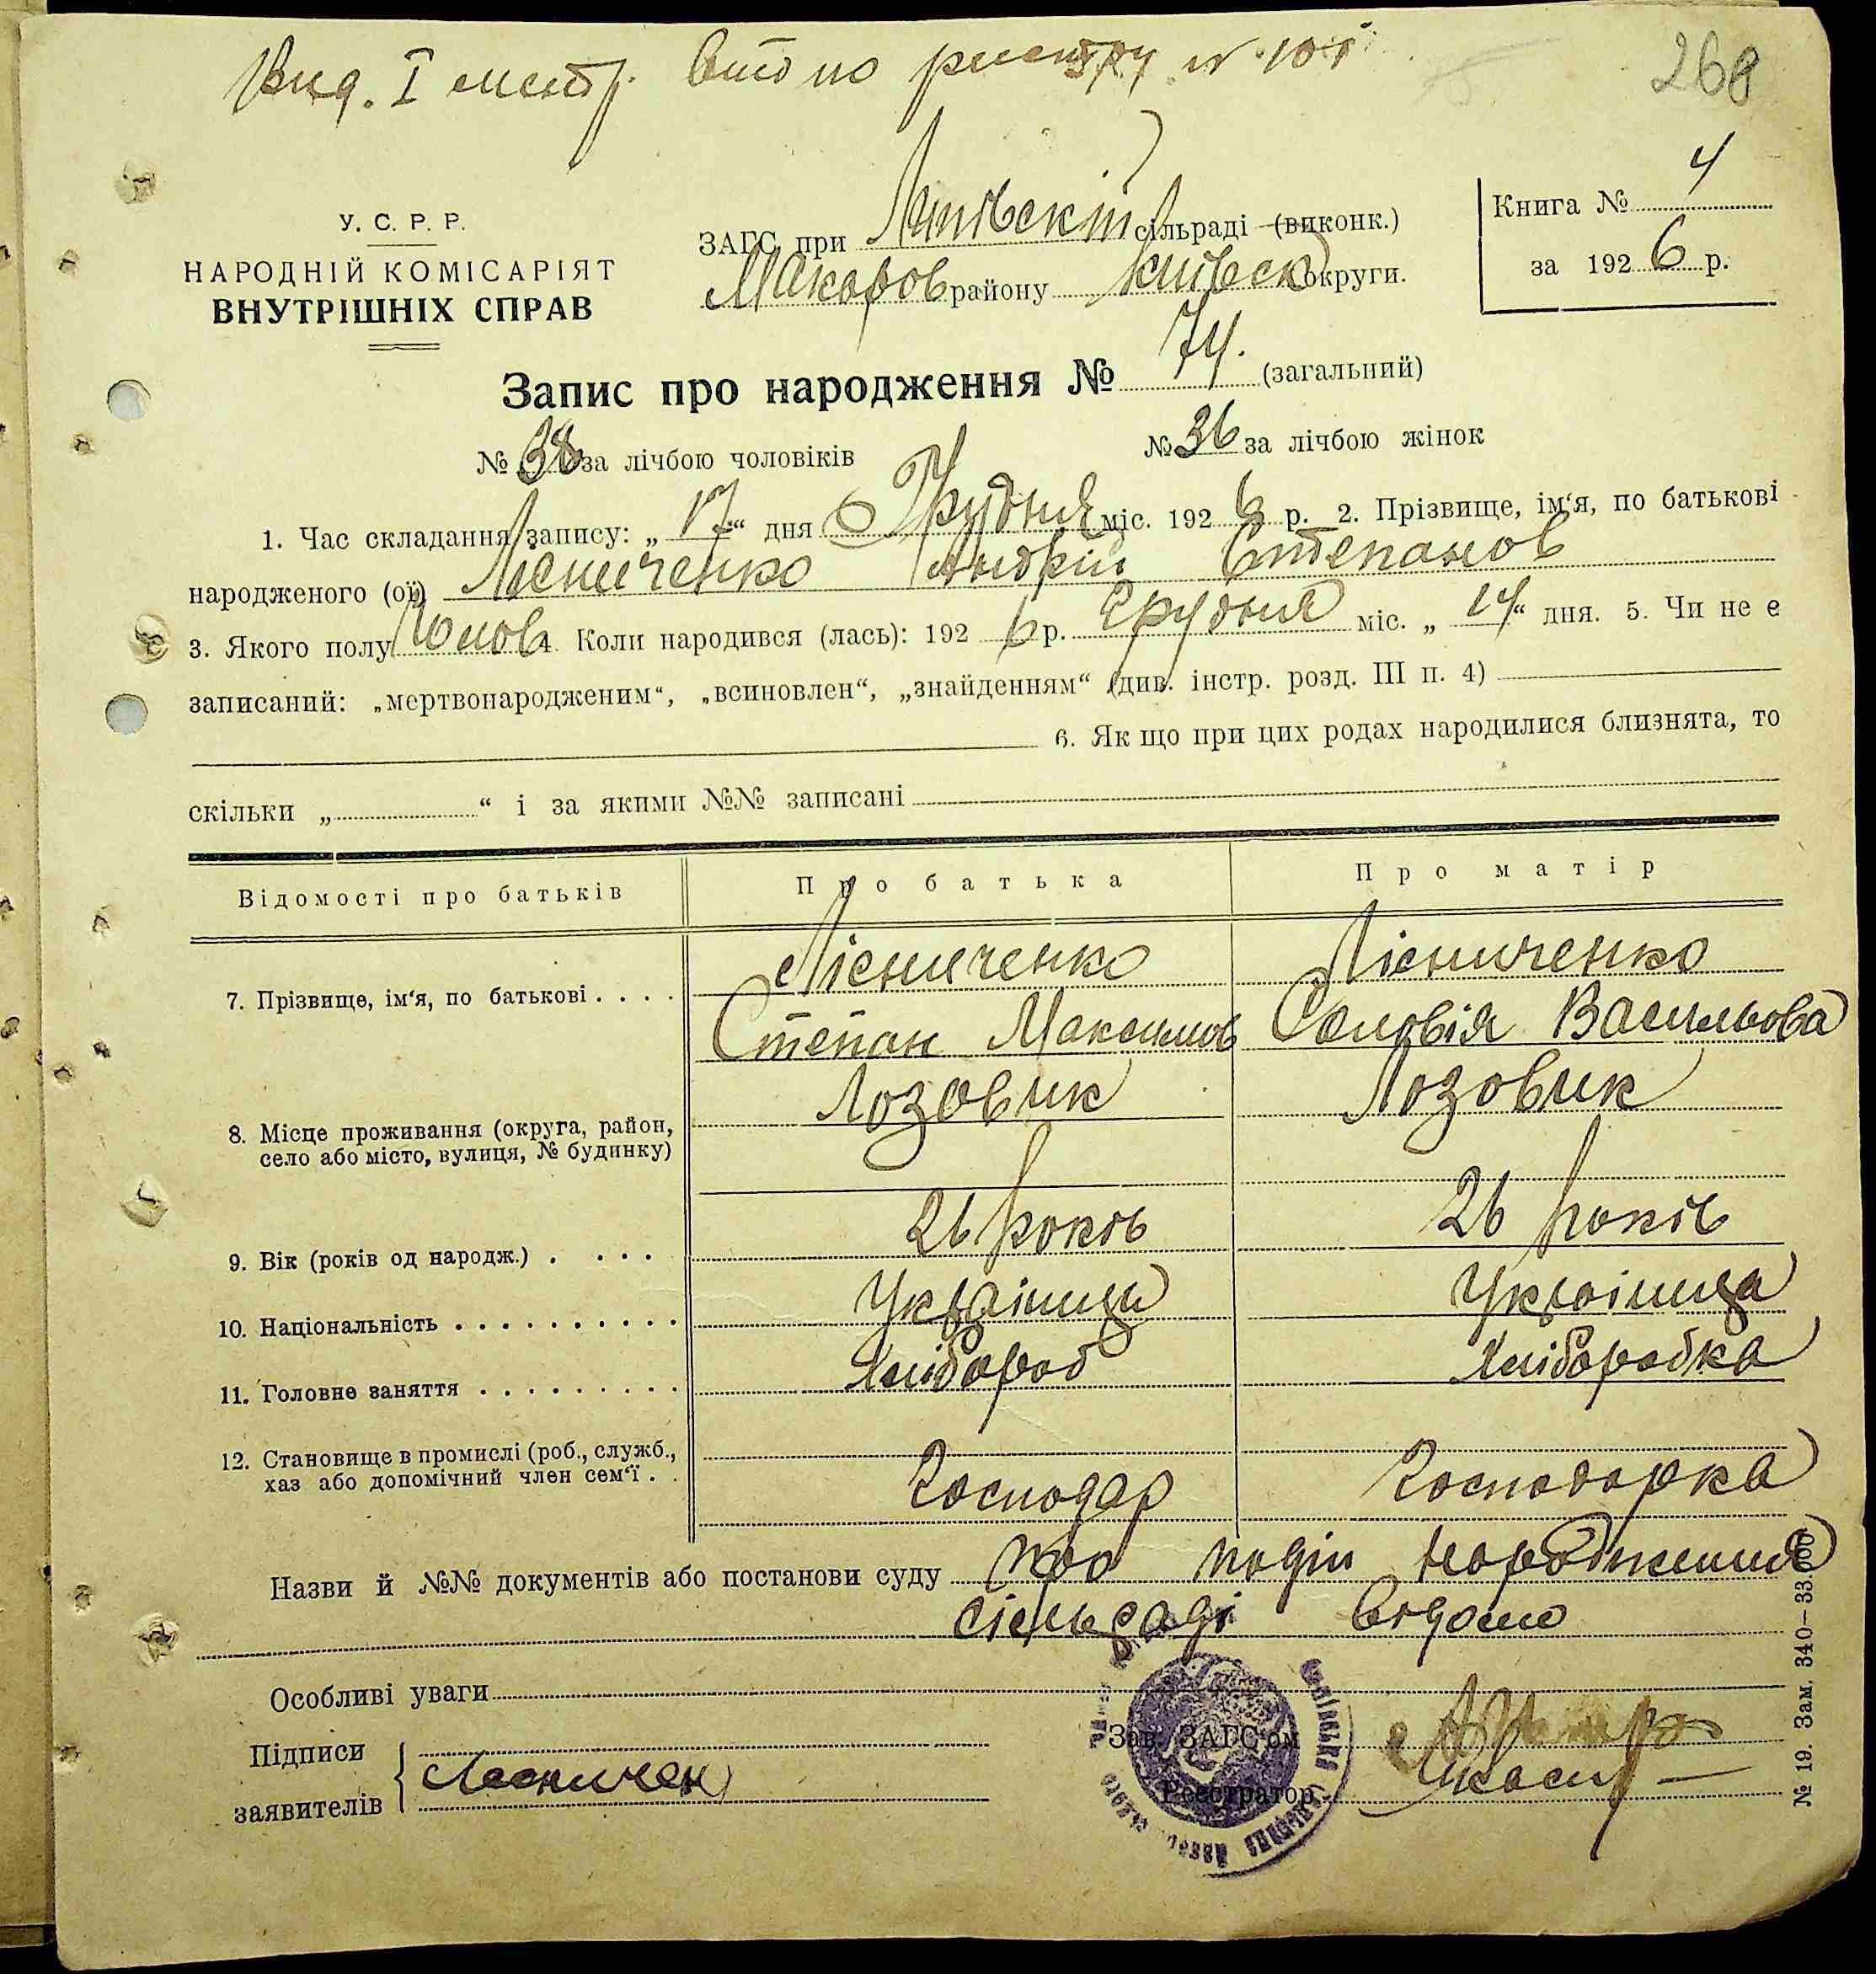 Вид. І
268
У. С. Р. Р.
НАРОДНІЙ КОМІСАРІЯТ
ВНУТРІШНІХ СПРАВ
ЗАГС при сільраді (виконк.)
Макаров району Київськ округи.
Книга № 4
за 1926 р.
Запис про народження № 74. (загальний)
№ 38 за лічбою чоловіків № 36 за лічбою жінок
1. Час складання запису: „17“ дня Грудня міс. 1926 р. 2. Прізвище, ім‘я, по батькові
народженого (ої) Лісниченко Андрій Степанов
3. Якого полу Чолов 4. Коли народився (лась): 1926 р. Грудня міс. „14“ дня. 5. Чи не є
записаний: „мертвонародженим“, „всиновлен“, „знайденням“ (див. інстр. розд. III п. 4)
6. Як що при цих родах народилися близнята, то
скільки „ “ і за якими №№ записані
Відомості про батьків Про батька Про матір
7. Прізвище, ім‘я, по батькові . . . . Лісниченко Лісниченко
Степан Максимов Соловія Васильова
Лозовик Лозовик
8. Місце проживання (округа, район,
село або місто, вулиця, № будинку)
9. Вік (років од народж.) . . . . 26 років 26 років
10. Національність . . . . . . . . . . Українець Українца
11. Головне заняття . . . . . . . . . Хлібороб Хліборобка
12. Становище в промислі (роб., служб.,
хаз або допомічний член сем‘ї . . Господар Господарка
Назви й №№ документів або постанови суду Про подію народження
сільраді відомо
Особливі уваги
Підписи
заявителів Лесничен
Зав. ЗАГС‘ом
Реєстратор
№ 19. Зам. 340–33.000